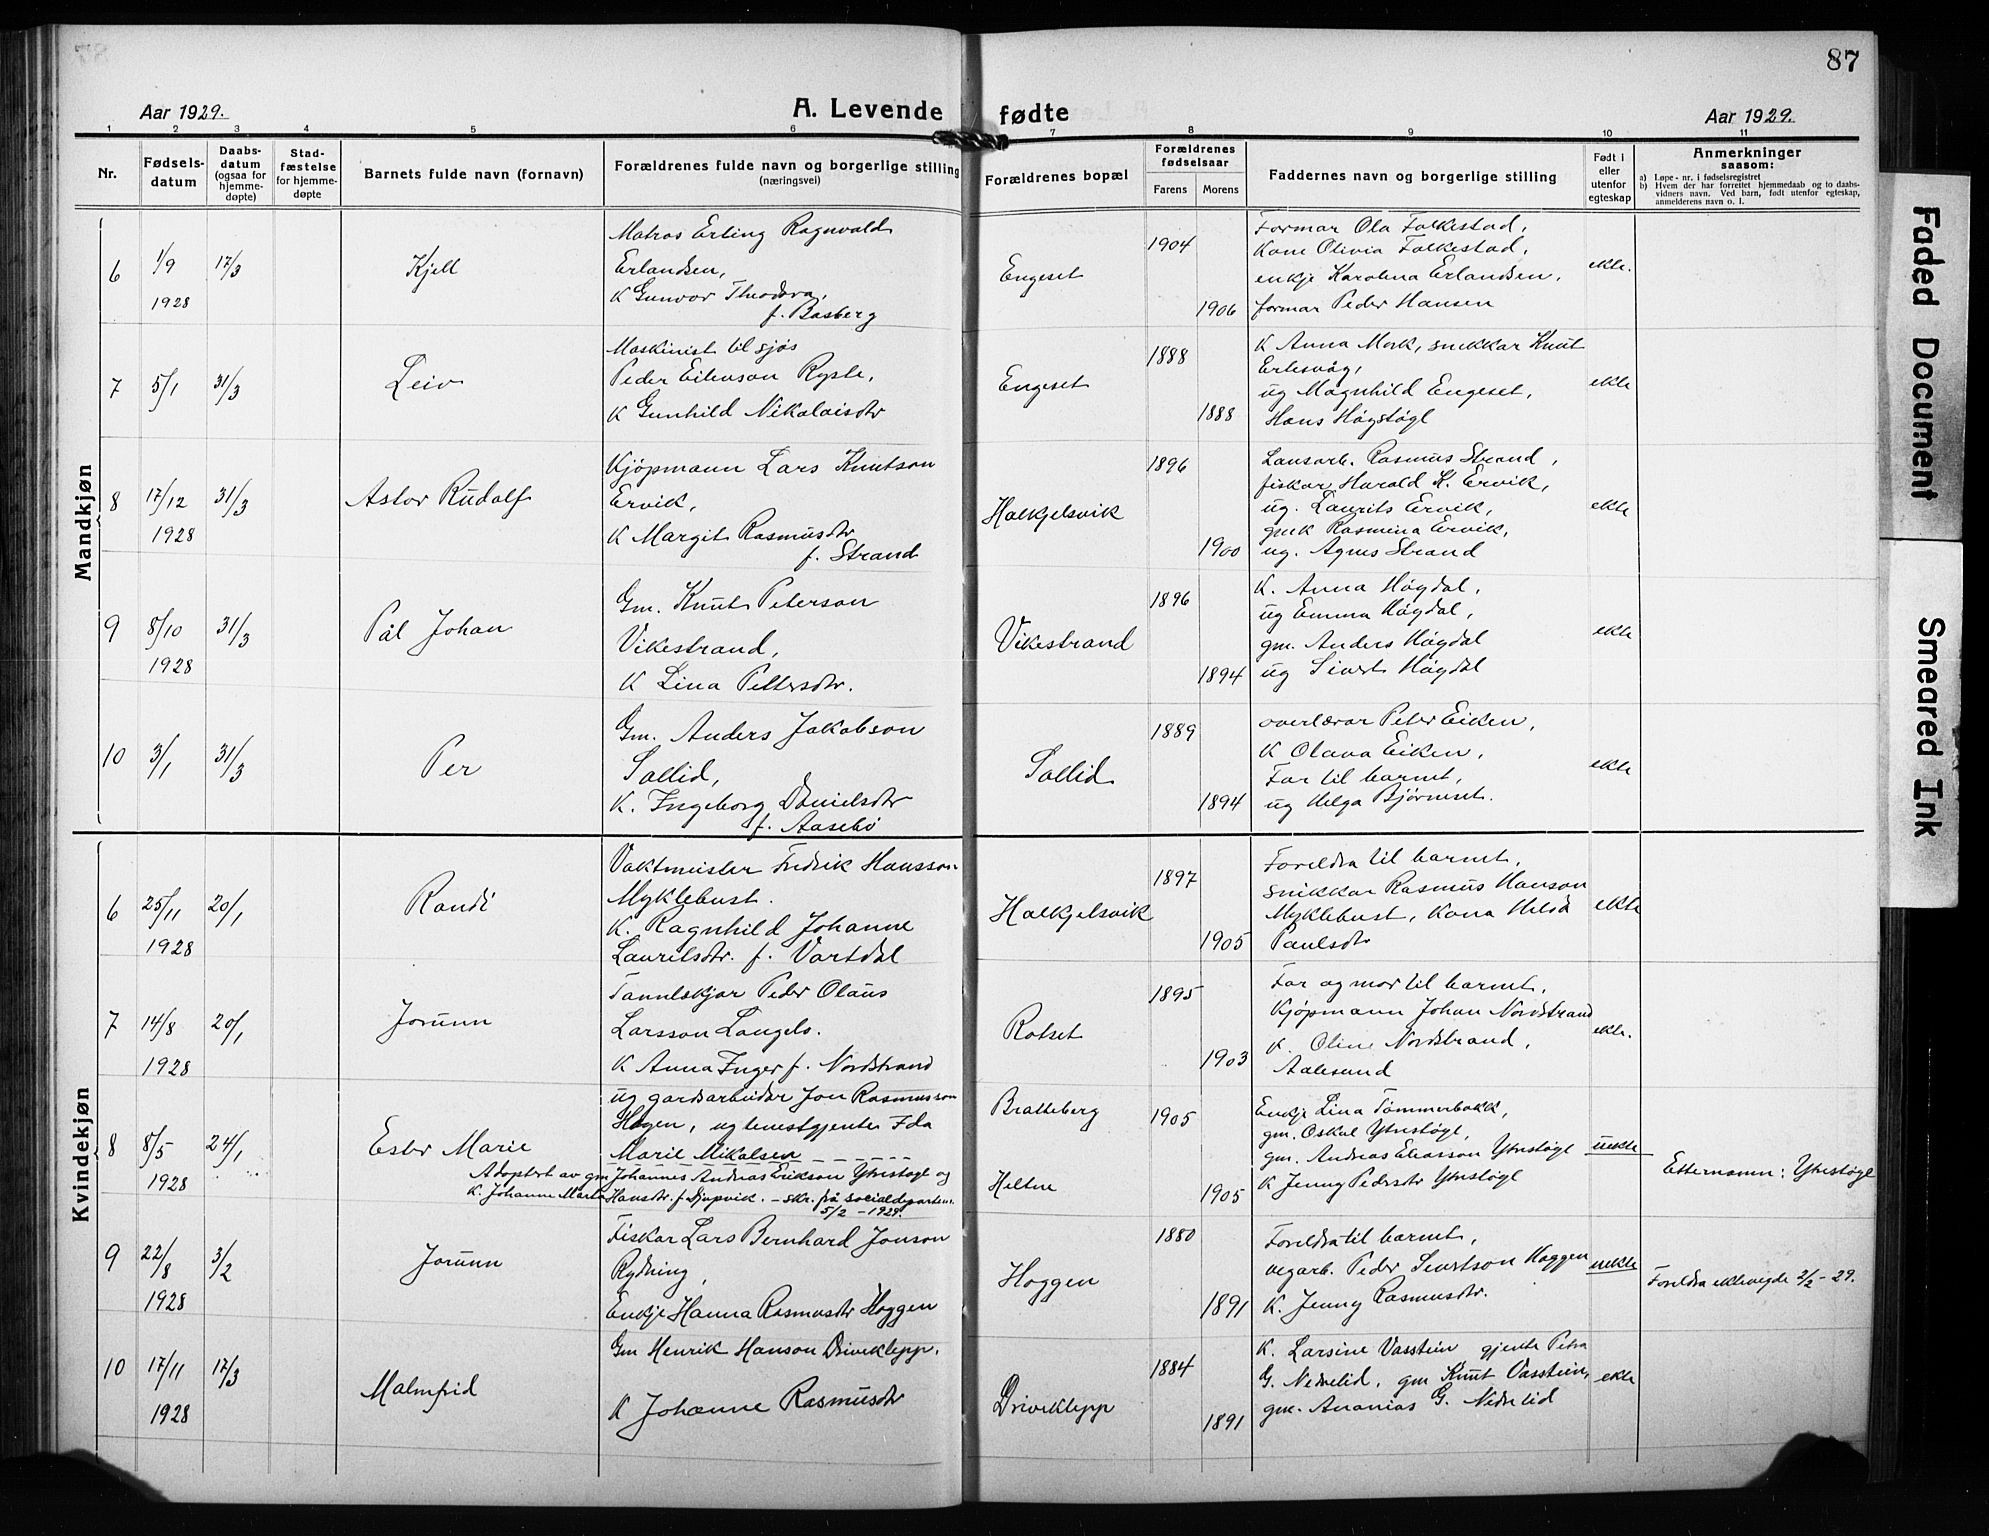 87
Aar 1929.
A. Levende fødte
Aar 1929.
1 2 3 4 5 6 7 8 9 10 11
Nr.
Fødsels-
datum
Daabs-
datum
(ogsaa for
hjemme-
døpte)
Stad-
fæstelse
for hjemme-
døpte
Barnets fulde navn (fornavn)
Forældrenes fulde navn og borgerlige stilling
(næringsvei)
Forældrenes bopæl
Forældrenes
fødselsaar
Farens Morens
Faddernes navn og borgerlige stilling
Født i
eller
utenfor
egteskap
Anmerkninger
saasom:
a) Løpe-nr. i fødselsregistret
b) Hvem der har forrettet hjemmedaab og to daabs-
vidners navn. Ved barn, født utenfor egteskap,
anmelderens navn o. l.
Mandkjøn
6
1/9
1928
17/3
Kjell
Matros Erling Ragnvald
Erlandsen,
K Gunvor Theodora,
f. Basberg
Engeset
1904
1906
Formar Ola Folkestad,
Kone Olivia Folkestad,
enkje Karolina Erlandsen,
formar Peder Hansen
ekte.
7
5/1
31/3
Leiv
Maskinist til sjøs
Peder Eilevson Ryste,
K Gunhild Nikolaisdtr
Engeset
1888
1888
K Anna Mork, snekkar Knut
Ertesvåg,
ug Magnhild Engeset,
Hans Høgstøyl
ekte
8
17/12
1928
31/3
Astor Rudolf
Kjøpmann Lars Knutson
Ervik,
K Margit Rasmusdtr
f. Strand
Halkjelsvik
1896
1900
Lausarb. Rasmus Strand,
fiskar Harald K. Ervik,
ug. Laurits Ervik,
gmk Rasmina Ervik,
ug. Agnes Strand
ekte
9
8/10
1928
31/3
Pål Johan
Gm. Knut Peterson
Vikestrand,
K Lina Pettersdtr.
Vikestrand
1896
1894
K. Anna Høgdal,
ug Emma Høgdal,
gm. Anders Høgdal
ug Sivert Høgdal
ekte
10
3/1
31/3
Per
Gm. Anders Jakobson
Sollid,
K. Ingeborg Danielsdtr
f. Aasebø
Sollid
1889
1894
overlærar Peter Eiken,
K Olava Eiken,
Far til barnet,
ug Helga Bjørneset.
ekte
Kvindekjøn
6
25/11
1928
20/1
Randi
Vaktmeister Fredrik Hansson
Myklebust.
K. Ragnhild Johanne
Lauritsdtr. f. Vartdal
Halkjelsvik
1897
1905
Foreldra til barnet,
snikkar Rasmus Hanson
Myklebust, Kona
Paulsdtr
ekte
7
14/8
1928
20/1
Jorunn
Tannlækjar Peder Olaus
Larsson Langelo.
K Anna Inger f. Nordstrand
Rotset
1895
1903
Far og mor til barnet,
Kjøpmann Johan Nordstrand
K. Oline Nordstrand,
Aalesund
ekte.
8
8/5
1928
24/1
Ester Marie
ug gardsarbeider Jon Rasmusson
Hagen, ug tenestgjente Ida
Marie Mikalsen
Adoptert av gm Johannes Andreas Erikson Ytrestøyl og
K. Johanne Marta Hansdtr. f. Djupvik. – skr. frå socialdepartem.
5/2 – 1929.
Bratteberg
Heltne
1905
1905
Enkje Lina Tømmerbakk,
gm. Oskal Ytrestøyl,
gm. Andreas Eliasson Ytrestøyl
K Jenny Pedersdtr Ytrestøyl
uekte
Etternamn: Ytrestøyl
9
22/8
1928
3/2
Jorunn
Fiskar Lars Bernhard Jonson
Rydning,
Enkje Hanna Rasmusdtr Hoggen
Hoggen
1880
1891
Foreldra til barnet,
vegarb. Peder Sivertson Hoggen
K. Jenny Rasmusdtr.
uekte
Foreldra ektevigde 2/2 – 29.
10
17/11
1928
17/3
Malmfrid
Gm Henrik Hanson Driveklepp,
K Johanne Rasmusdtr
Driveklepp
1884
1891
K. Larsine Vasstein gjenta Petra
G. Nedrelid, gm Knut Vasstein,
gm. Ananias G. Nedrelid
ekte
Faded Document
Smeared Ink